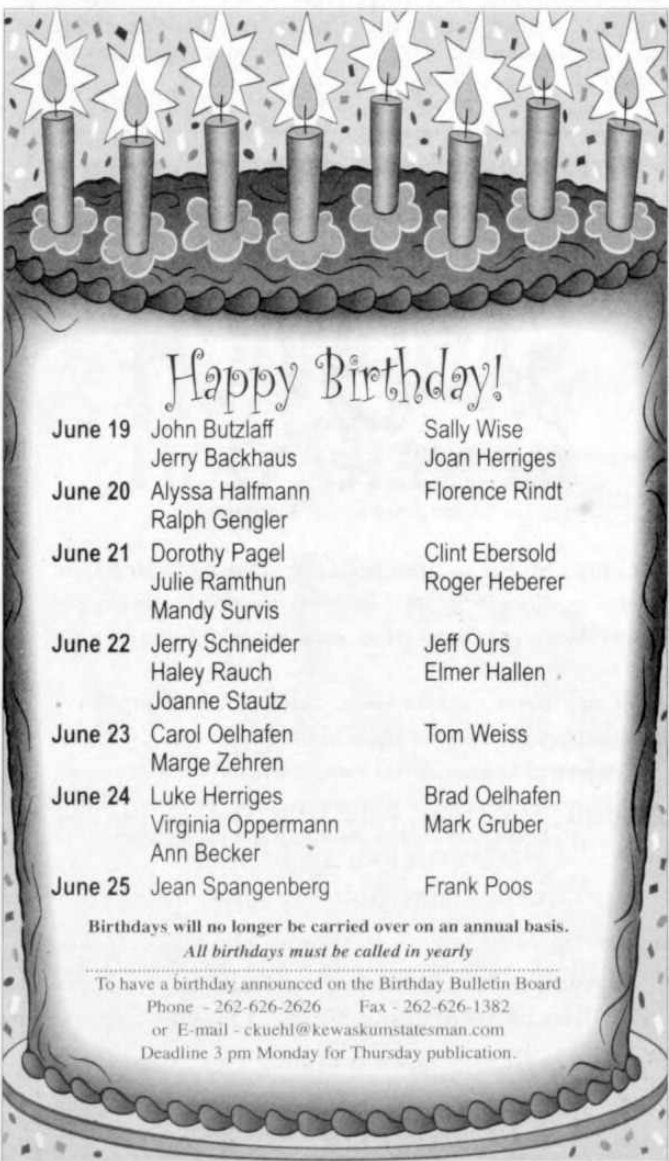 Happy Birthday!
June 19 John Butzlaff Sally Wise
Jerry Backhaus Joan Herriges
June 20 Alyssa Halfmann Florence Rindt
Ralph Gengler
June 21 Dorothy Pagel Clint Ebersold
Julie Ramthun Roger Heberer
Mandy Survis
June 22 Jerry Schneider Jeff Ours
Haley Rauch Elmer Hallen
Joanne Stautz
June 23 Carol Oelhafen Tom Weiss
Marge Zehren
June 24 Luke Herriges Brad Oelhafen
Virginia Oppermann Mark Gruber
Ann Becker
June 25 Jean Spangenberg Frank Poos
Birthdays will no longer be carried over on an annual basis.
All birthdays must be called in yearly
To have a birthday announced on the Birthday Bulletin Board
Phone - 262-626-2626 Fax - 262-626-1382
or E-mail - ckuehl@kewaskumstatesman.com
Deadline 3 pm Monday for Thursday publication.